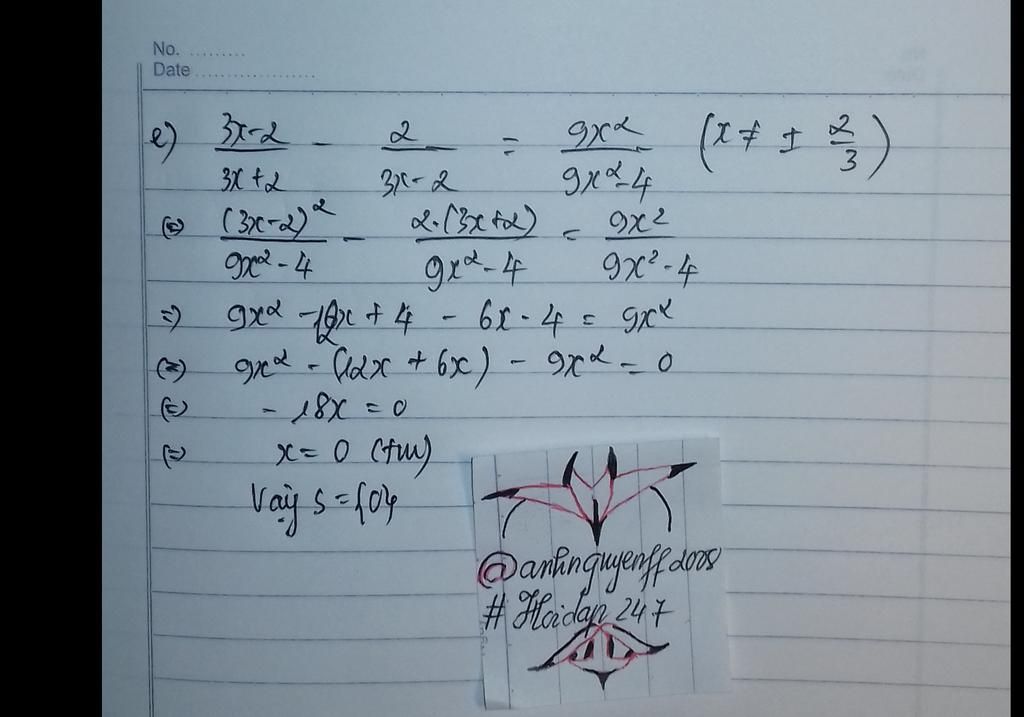 No. .........
Date ..................
e) (3x-2)/(3x+2) - 2/(3x-2) = 9x²/(9x²-4) (x ≠ ± 2/3)
⇔ (3x-2)²/(9x²-4) - 2.(3x+2)/(9x²-4) = 9x²/(9x²-4)
⇒ 9x² - 12x + 4 - 6x - 4 = 9x²
⇔ 9x² - (12x + 6x) - 9x² = 0
⇔ - 18x = 0
⇔ x = 0 (tm)
Vậy S = {0}
@anhnguyenff2008
# Hoidap 247